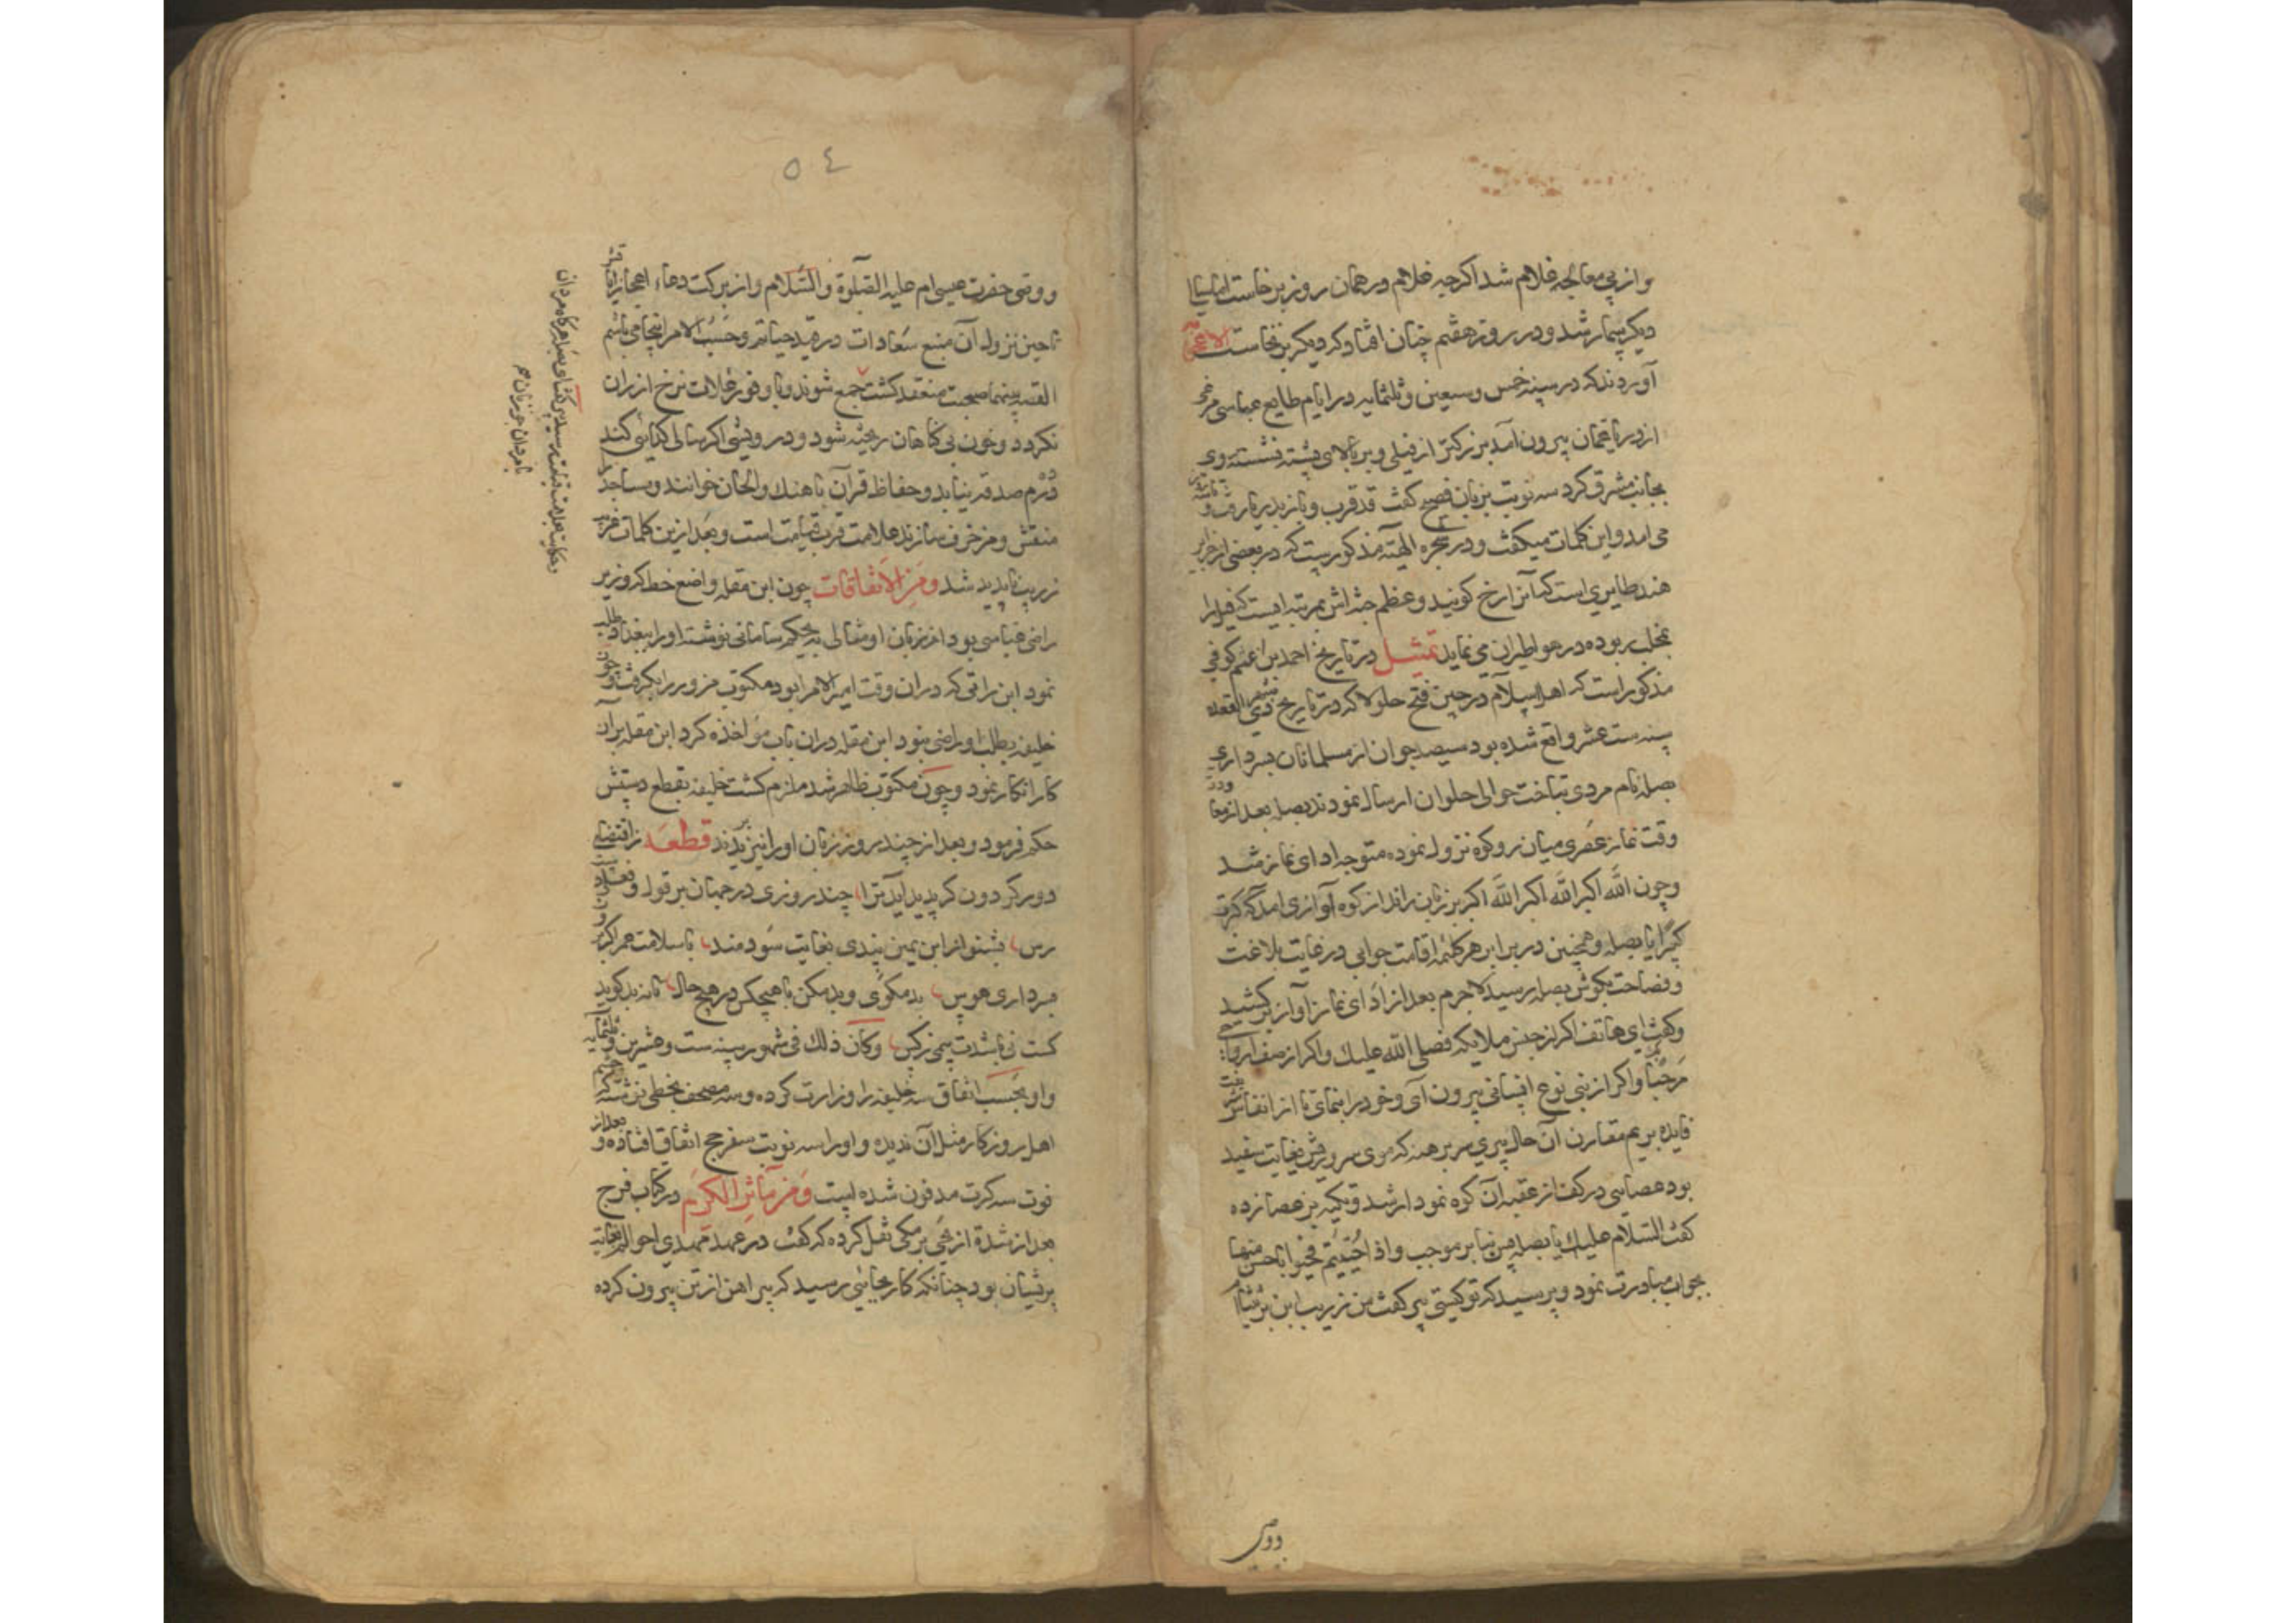 و از پی معالجه غلام شد اکرچه غلام در همان روز برخاست اما
دیکر بیمار شد و در روز هفتم چنان افتاد که دیکر برنخاست
آورده‌اند که در سنه خمس و سبعین و ثلثمایه در ایام طایع عباسی مرغی
از دریا عمان بیرون آمد بزرکتر از فیلی و بر بالای پشته نشسته روی
بجانب مشرق کرد سه نوبت بزبان فصیح کفت قد قرب و باز بدریا رفت و
می آمد و این کلمات میکفت و در شجره الهیه مذکورست که در بعضی از جزایر
هند طایری است که آنرا رخ کویند و عظم جثه اش بمرتبه ایست که فیل را
بمخلب ربوده در هوا طیران می نماید تمثیل در تاریخ احمد بن اعثم کوفی
مذکور است که اهل اسلام در حین فتح حلولا که در تاریخ ذی القعده
سنه ست عشر واقع شده بود سیصد جوان از مسلمانان بسرداری
بصله نام مردی بتاخت حوالی حلوان ارسال نمودند بصله بعد از
وقت نماز عصری میان دو کوه نزول نموده متوجه ادای نماز شد
و چون الله اکبر الله اکبر الله اکبر بر زبان راند از کوه آوازی آمد که کبرت
کبیرا یا بصله و همچنین در برابر هر کلمه اقامت جوابی در غایت بلاغت
و فصاحت بکوش بصله رسید لاجرم بعد از ادای نماز آواز برکشید
و کفت ای هاتف اکر از جنس ملایکه فصلی الله علیک و اکر از صنف
مرحبا و اکر از بنی نوع انسانی بیرون آی و خود را بنمای تا از انفاس
فایده بریم مقارن آن حال پیری سر برهنه که موی سر و ریش بغایت سفید
بود عصایی در کف از عقبه آن کوه نمودار شد و تکیه بر عصا زده
کفت السلام علیک یا بصله پس بنا بر موجب و اذا حییتم فحیوا باحسن منها
بجواب مبادرت نمود و پرسید که تو کیستی پیر کفت من زریب ابن
ووصی
٥٤
و وصی حضرت عیسی ام علیه الصلوة والسلام و از برکت دعاء
تا حین نزول آن منبع سعادات در قید حیاتم و حسب الامر اینجا می باشم
القصه بینهما صحبت منعقد کشت جمع شوند و با وفور غلات نرخ ارزان
نکردد و خون بی کناهان ریخته شود و در ویشی اکر سالی کدایی کند
درم صدقه نیابد و حفاظ قرآن باهنک و الحان خوانند و مساجد
منقش و مزخرف سازند علامت قرب قیامت است و بعد ازین کلمات
زریب ناپدید شد و من الاتفاقات چون ابن مقله واضع خط که وزیر
راضی عباسی بود از زبان او مثالی به بحکم سامانی نوشته او را ببغداد طلب
نمود ابن رائقی که در ان وقت امیر الامرا بود مکتوب مزور را بکرفت و چون
خلیفه بطلب او راضی نبود ابن مقله در ان باب مؤاخذه کرد ابن مقله بر آن
کار انکار نمود و چون مکتوب ظاهر شد ملزم کشت خلیفه بقطع دستش
حکم فرمود و بعد از چند روز زبان او را نیز بریدند قطعه ز اقتضای
دور کردون کر پدید آید ترا چند روزی در جهان بر قول و فعلی
رس بشنو از ابن یمین پندی بغایت سودمند با سلامت عمر اکر
سر داری هوس بد مکوی و بد مکن با هیچکس در هیچ حال تا نه بد کوید
کست نی باشدت بیمی ز کس وکان ذلک فی شهور سنه ست و عشرین و ثلثمایه
و او بحسب اتفاق سه خلیفه را وزارت کرده و سه مصحف بخطی نوشته که
اهل روزکار مثل آن ندیده و او را سه نوبت سفر حج اتفاق افتاده و بعد از
فوت سه کرت مدفون شده است و من مآثر الکرم در کتاب فرج
بعد از شدة از یحیی برمکی نقل کرده که کفت در عهد مهدی احوالم بغایت
پریشان بود چنانکه کار بجایی رسید که پیراهن از تن بیرون کرده